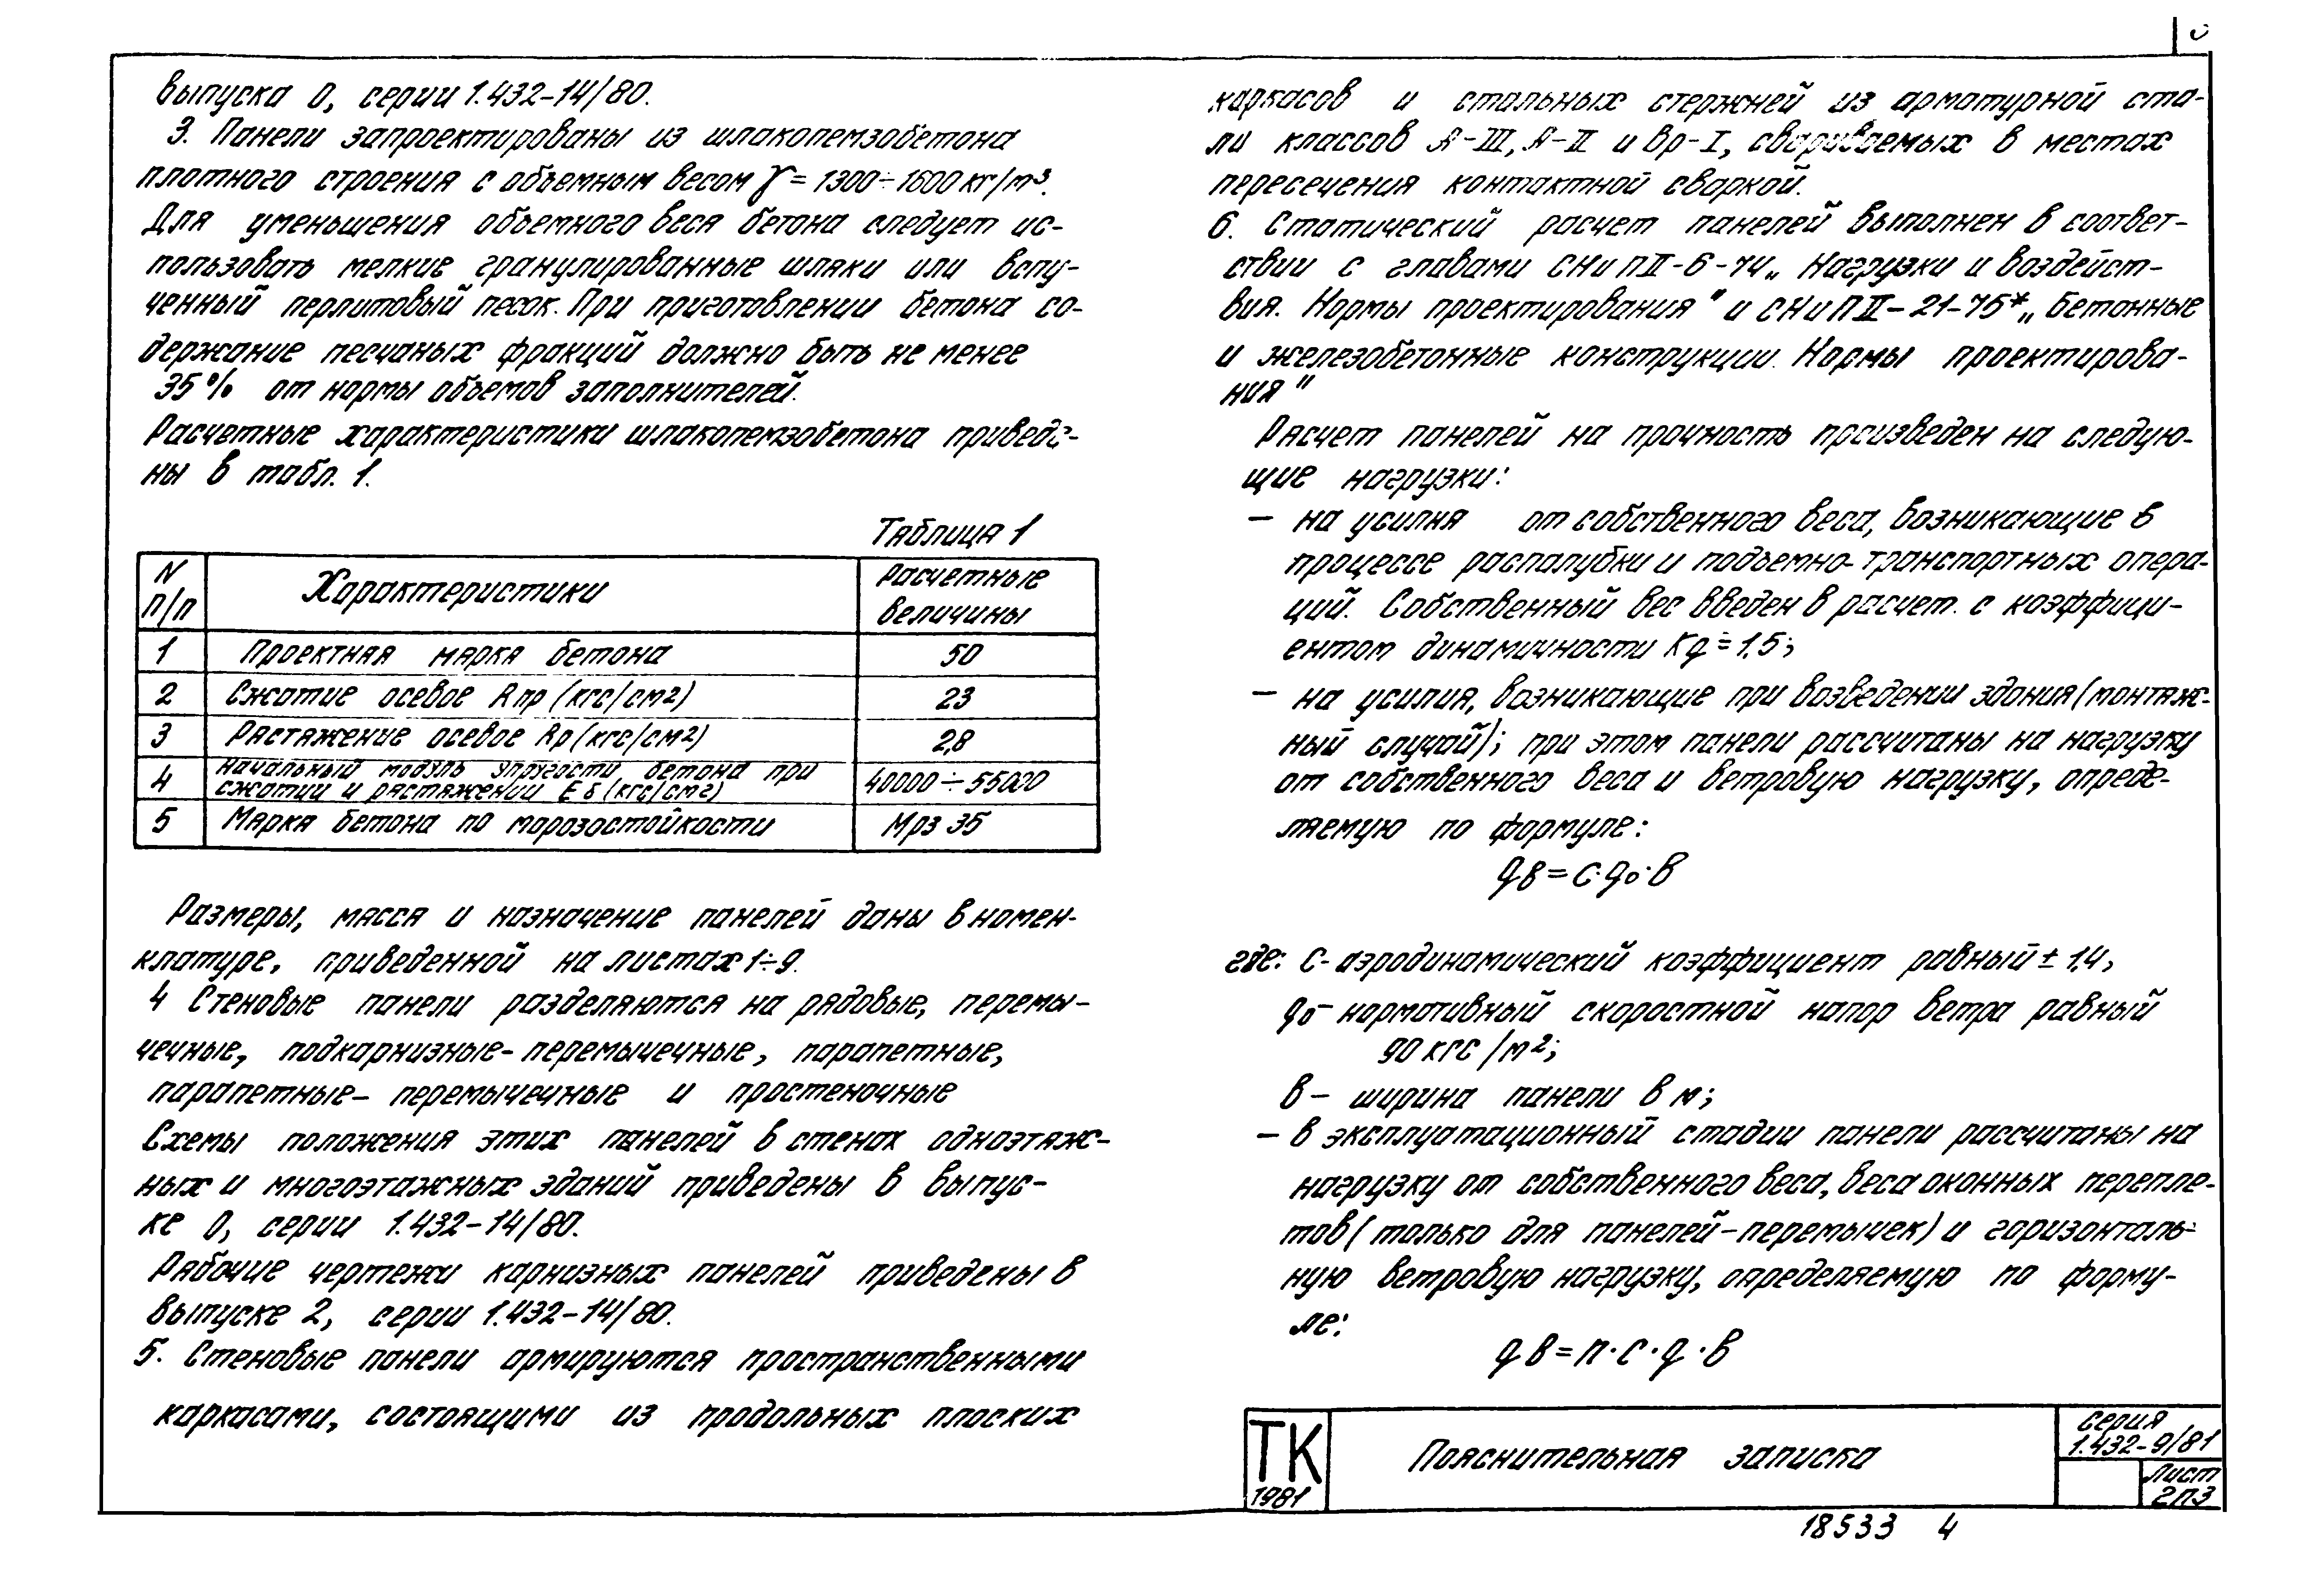 выпуска 0, серии 1.432-14/80.
3. Панели запроектированы из шлакопемзобетона
плотного строения с объемным весом γ = 1300÷1600 кг/м³.
Для уменьшения объемного веса бетона следует ис-
пользовать мелкие гранулированные шлаки или вспу-
ченный перлитовый песок. При приготовлении бетона со-
держание песчаных фракций должно быть не менее
35% от нормы объемов заполнителей.
Расчетные характеристики шлакопемзобетона приведе-
ны в табл. 1.
Таблица 1
N п/п Характеристики Расчетные величины
1 Проектная марка бетона 50
2 Сжатие осевое Rпр (кгс/см2) 23
3 Растяжение осевое Rр (кгс/см2) 2,8
4 Начальный модуль упругости бетона при сжатии и растяжении Еб (кгс/см2) 40000 ÷ 55000
5 Марка бетона по морозостойкости Мрз 35
Размеры, масса и назначение панелей даны в номен-
клатуре, приведенной на листах 1÷9.
4 Стеновые панели разделяются на рядовые, перемы-
чечные, подкарнизные-перемычечные, парапетные,
парапетные- перемычечные и простеночные
Схемы положения этих панелей в стенах одноэтаж-
ных и многоэтажных зданий приведены в выпус-
ке 0, серии 1.432-14/80.
Рабочие чертежи карнизных панелей приведены в
выпуске 2, серии 1.432-14/80.
5. Стеновые панели армируются пространственными
каркасами, состоящими из продольных плоских
каркасов и стальных стержней из арматурной ста-
ли классов А-III, А-II и Вр-I, свариваемых в местах
пересечения контактной сваркой.
6. Статический расчет панелей выполнен в соответ-
ствии с главами СНиП II-6-74 „Нагрузки и воздейст-
вия. Нормы проектирования" и СНиП II-21-75* „Бетонные
и железобетонные конструкции. Нормы проектирова-
ния"
Расчет панелей на прочность произведен на следую-
щие нагрузки:
- на усилия от собственного веса, возникающие в
процессе распалубки и подъемно-транспортных опера-
ций. Собственный вес введен в расчет с коэффици-
ентом динамичности Kg = 1,5;
- на усилия, возникающие при возведении здания (монтаж-
ный случай); при этом панели рассчитаны на нагрузку
от собственного веса и ветровую нагрузку, опреде-
ляемую по формуле:
qв = c·q₀·в
где: С- аэродинамический коэффициент равный ± 1,4,
q₀- нормативный скоростной напор ветра равный
90 кгс/м2;
в - ширина панели в м;
- в эксплуатационный стадии панели рассчитаны на
нагрузку от собственного веса, веса оконных перепле-
тов (только для панелей-перемычек) и горизонталь-
ную ветровую нагрузку, определяемую по форму-
ле:
qв = п·с·q·в
ТК
1981
Пояснительная записка
Серия
1.432-9/81
Лист
2ПЗ
18533 4